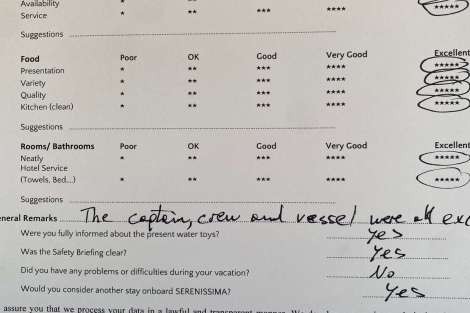 Availability * ** *****
Service * ** *** ****
Suggestions
Food Poor OK Good Very Good Excellent
Presentation * ** *** **** *****
Variety * ** *** **** *****
Quality * ** *** **** *****
Kitchen (clean) * ** *** **** *****
Suggestions
Rooms/ Bathrooms Poor OK Good Very Good Excellent
Neatly * ** *** **** *****
Hotel Service
(Towels, Bed...) * ** *** **** *****
Suggestions
eneral Remarks The captain, crew and vessel were all exc
Were you fully informed about the present water toys? yes
Was the Safety Briefing clear? Yes
Did you have any problems or difficulties during your vacation? No
Would you consider another stay onboard SERENISSIMA? Yes
assure you that we process your data in a lawful and transparent manner.